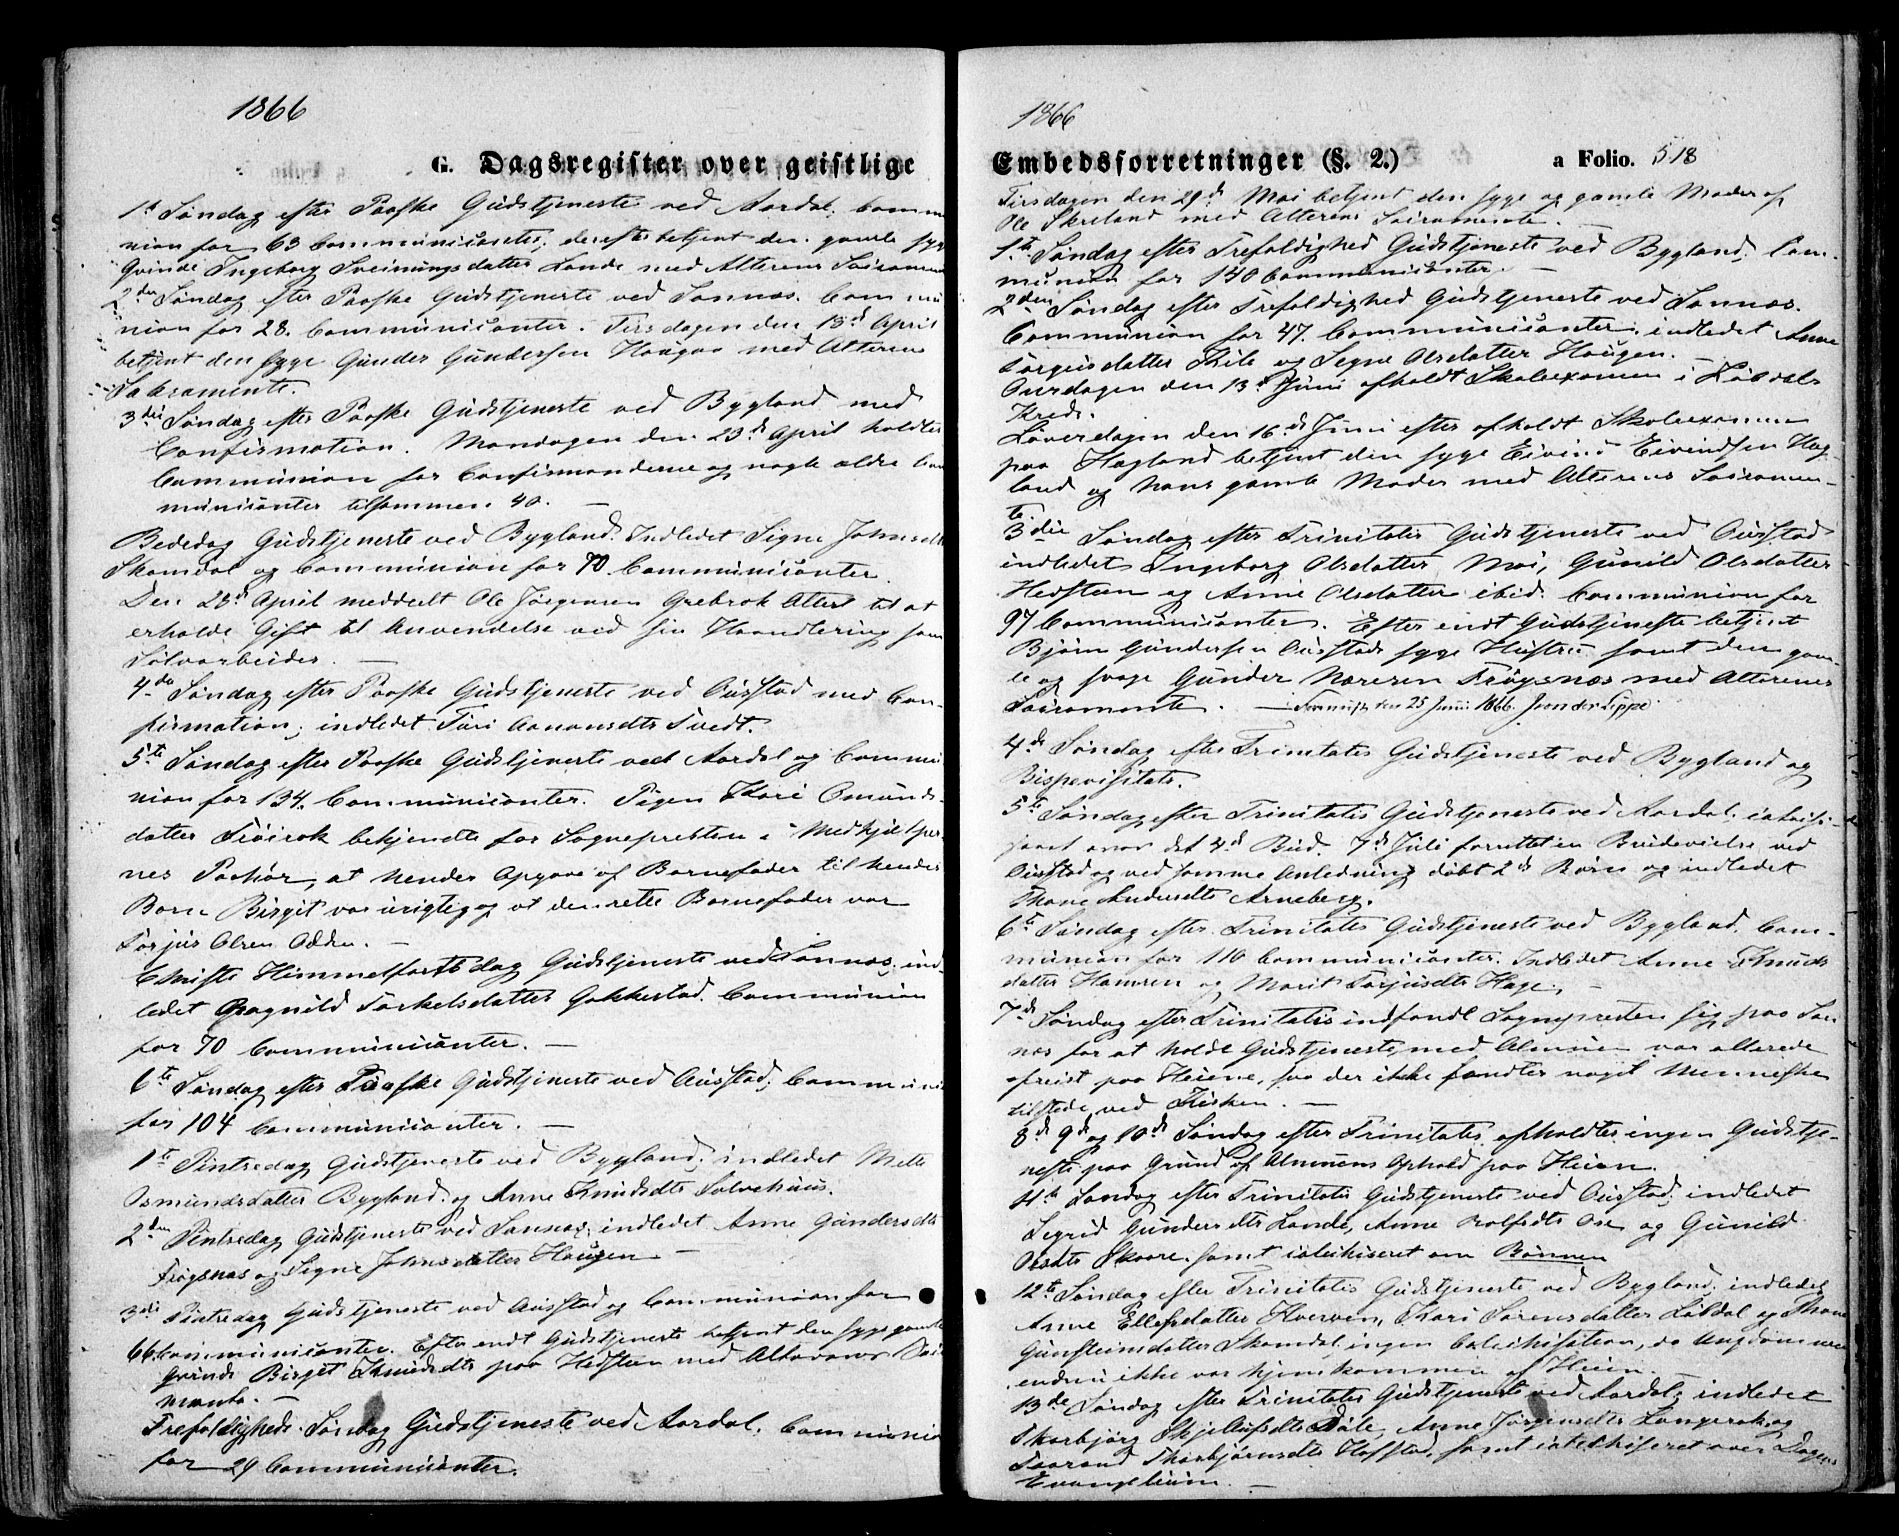 1866
G. Dagsregister over geistlige
1ste Søndag efter Paaske Gudstjeneste ved Aardal, Commu
nion for 63 Communicanter, derefter betjent den gamle syge
Qvinde Ingeborg Sveinungsdatter Lande med Alterens Sacrament
2den Søndag efter Paaske Gudstjeneste ved Sannæs. Commu
nion for 28. Communicanter. Tirsdagen den April
betjent den syge Gunder Gundersen Haugaa med Alterens
Sakramente.
3die Søndag efter Paaske Gudstjeneste ved Bygland med
Confirmation. Mandagen den 23de April holdtes
Communion for Confirmanderne og nogle ældre Com
municanter tilsammen 40. —
Bededag Gudstjeneste ved Bygland. Indledet Signe Johnsdtr
Skamdal og Communion for 70 Communicanter.
Den 28de April meddeelt Ole Jørgensen Grebrok Attest til at
erholde Gift til Anvendelse ved sin Haandtering som
Sølvarbeider. —
4de Søndag efter Paaske Gudstjeneste ved Austad med Con-
firmation; indledet Turi Aanonsdtr Tvedt.
5te Søndag efter Paaske Gudstjeneste ved Aardal og Commu
nion for 134. Communicanter. Pigen Kari Omunds-
datter bekjendte for Sognepresten i Medhjelper-
nes Paahør, at hendes Opgave af Barnefader til hendes
Barn Birgit var urigtig og at den rette Barnefader var
Torjus Olsen —
Christi Himmelfartsdag Gudstjeneste ved Sannæs; ind-
ledet Ragnild Torkelsdatter Gakkestad. Communion
for 70 Communicanter. —
6te Søndag efter Paaske Gudstjeneste ved Austad; Communi
for 104 Communicanter. —
1ste Pintsedag Gudstjeneste ved Bygland; indledet Mette
Osmundsdatter Bygland og Anne Knudsdtr Solvehuus.
2den Pintsedag Gudstjeneste ved Sannæs; indledet Anne Gundersdtr
Frøysnæs og Signe Johnsdatter Haugen —
3die Pintsedag Gudstjeneste ved Austad og Communion for
66 Communicanter. Efter endt Gudstjeneste betjent den syge gamle
Qvinde Birget Knudsdtr paa Hedsteen med Alterens Sacra
mente. —
Trefoldigheds Søndag Gudstjeneste ved Aardal. Communion
for 29 Communicanter.
1866
Embedsforretninger (§. 2.) a Folio. 518
Tirsdagen den 29de Mai betjent den syge og gamle Moder af
Ole Skreland med Alterens Sacramente. —
1ste Søndag efter Trefoldighed Gudstjeneste ved Bygland; Com-
munion for 140 Communicanter. —
2den Søndag efter Trefoldighed Gudstjeneste ved Sannæs.
Communion for 47. Communicanter; indledet Anne
Torgusdatter Kile og Segne Olsdatter Haugen.
Onsdagen den 13de Juni afholdt Skoleexamen i Løbdals
Kreds.
Løverdagen den 16de Juni efter afholdt Skoleexamen
paa Hagland betjent den syge Eivind Eivindsen Hag
land og hans gamle Moder med Alterens Sacramen-
te.
3die Søndag efter Trinitatis Gudstjeneste ved Austad
indledet Ingeborg Olsdatter Moi, Gunild Olsdatter
Hedsteen og Anne Olsdatter ibid. Communion for
97 Communicanter. Efter endt Gudstjeneste betjent
Bjørn Gundersen Austads syge Hustru samt den gam-
le og svage Gunder Frøysnæs med Alterens
Sacramente. — den 25 Juni 1866. J von der Lippe.
4de Søndag efter Trinitatis Gudstjeneste ved Bygland og
Bispevisitats.
5te Søndag efter Trinitatis Gudstjeneste ved Aardal, catechi-
seret over det 4de Bud. 7de Juli forrettet en Brudevielse ved
Austad og ved samme Anledning døbt 2de Børn og indledet
Thone Andersdtr Arneberg.
6te Søndag efter Trinitatis Gudstjeneste ved Bygland, Com-
munion for 110 Communicanter. Indledet Anne Knuds
datter Hamren og Marit Torjusdtr Hage. —
7de Søndag efter Trinitatis indfandt Sognepresten sig paa San
næs for at holde Gudstjeneste, med Almuen var allerede
afreist paa Heiene, saa der ikke fandtes noget Menneske
tilstede ved Kirken. —
8de 9de og 10de Søndag efter Trinitatis afholdtes ingen Gudstje-
neste paa Grund af Almuens Ophold paa Heien.
11te Søndag efter Trinitatis Gudstjeneste ved Austad; indledet
Sigrid Gundersdtr Lande, Anne Rolfsdtr Ose og Gunild
Olsdtr Skaare, samt catechiseret om Bønnen
12te Søndag efter Trinitatis Gudstjeneste ved Bygland; indledet
Anne Ellefsdatter Kari Sørensdatter Løbdal og Thone
Gunsteinsdatter Skamdal, ingen Catechisation, da Ungdommen
endnu ikke var hjemkommen af Heien.
13de Søndag efter Trinitatis Gudstjeneste ved Aardal; indledet
Thorbjørg Anne Jørgensdtr Langerak og
Taarand Thorbjørnsdtr Hofstad, samt catechiseret over Dagens
Evangelium. —